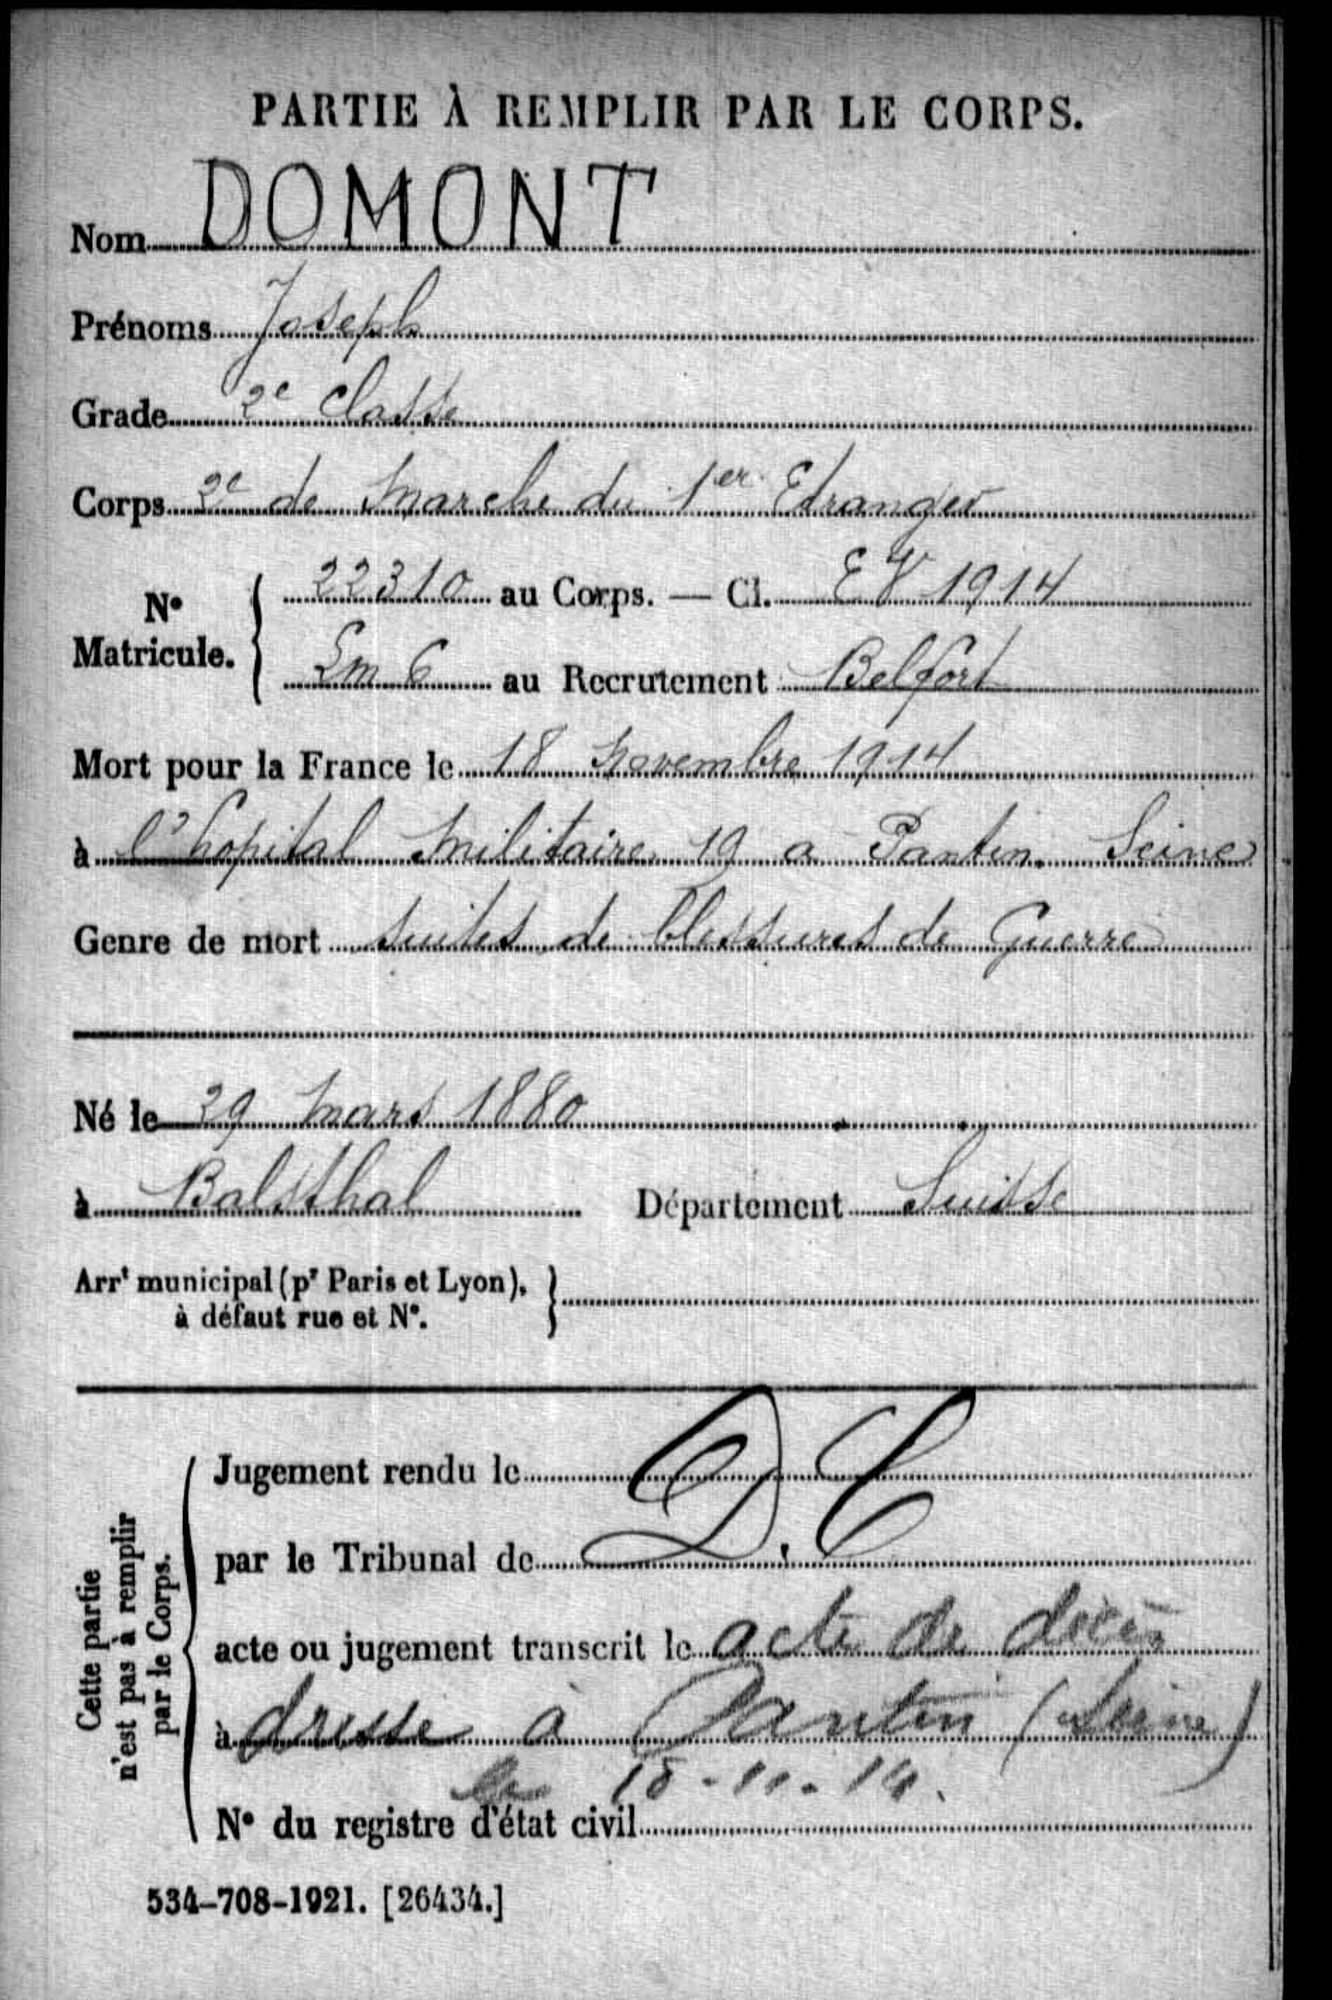 PARTIE À REMPLIR PAR LE CORPS.
Nom DOMONT
Prénoms Joseph
Grade 2e classe
Corps 2e de Marche du 1er Etranger
No Matricule. { 22310 au Corps. — Cl. EV 1914
Lm 6 au Recrutement Belfort
Mort pour la France le 18 Novembre 1914
à l'hopital Militaire 19 a Pantin. Seine
Genre de mort suites de blessures de Guerre
Né le 29 Mars 1880
à Balsthal Département Suisse
Arrt municipal (pr Paris et Lyon), }
à défaut rue et No.
Cette partie
n'est pas à remplir
par le Corps.
Jugement rendu le
D.C
par le Tribunal de
acte ou jugement transcrit le acte de décès
à dresse à Pantin (Seine)
le 18-11-14.
No du registre d'état civil
534-708-1921. [26434.]